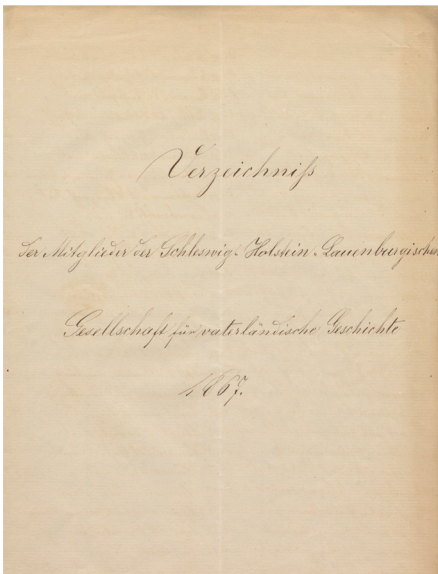 Verzeichniß
der Mitglieder der Schleswig-Holstein-Lauenburgischen
Gesellschaft für vaterländische Geschichte
1867.